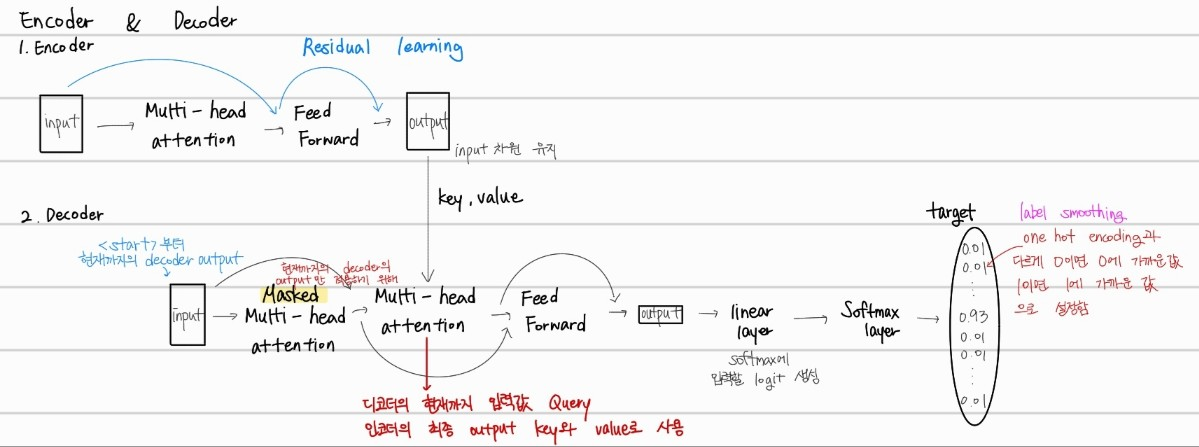 Encoder & Decoder
1. Encoder
Residual learning
input
Multi-head
attention
Feed
Forward
output
input 차원 유지
key, value
2. Decoder
<start>부터
현재까지의 decoder output
input
현재까지의 decoder의
output만 허용하기 위해
Masked
Multi-head
attention
Multi-head
attention
Feed
Forward
output
linear
layer
softmax에
입력할 logit 생성
Softmax
layer
target
0.01
0.01
:
:
0.93
0.01
0.01
:
:
0.01
label smoothing
one hot encoding과
다르게 0이면 0에 가까운값
1이면 1에 가까운 값
으로 설정함
디코더의 현재까지 입력값 Query
인코더의 최종 output key와 value로 사용